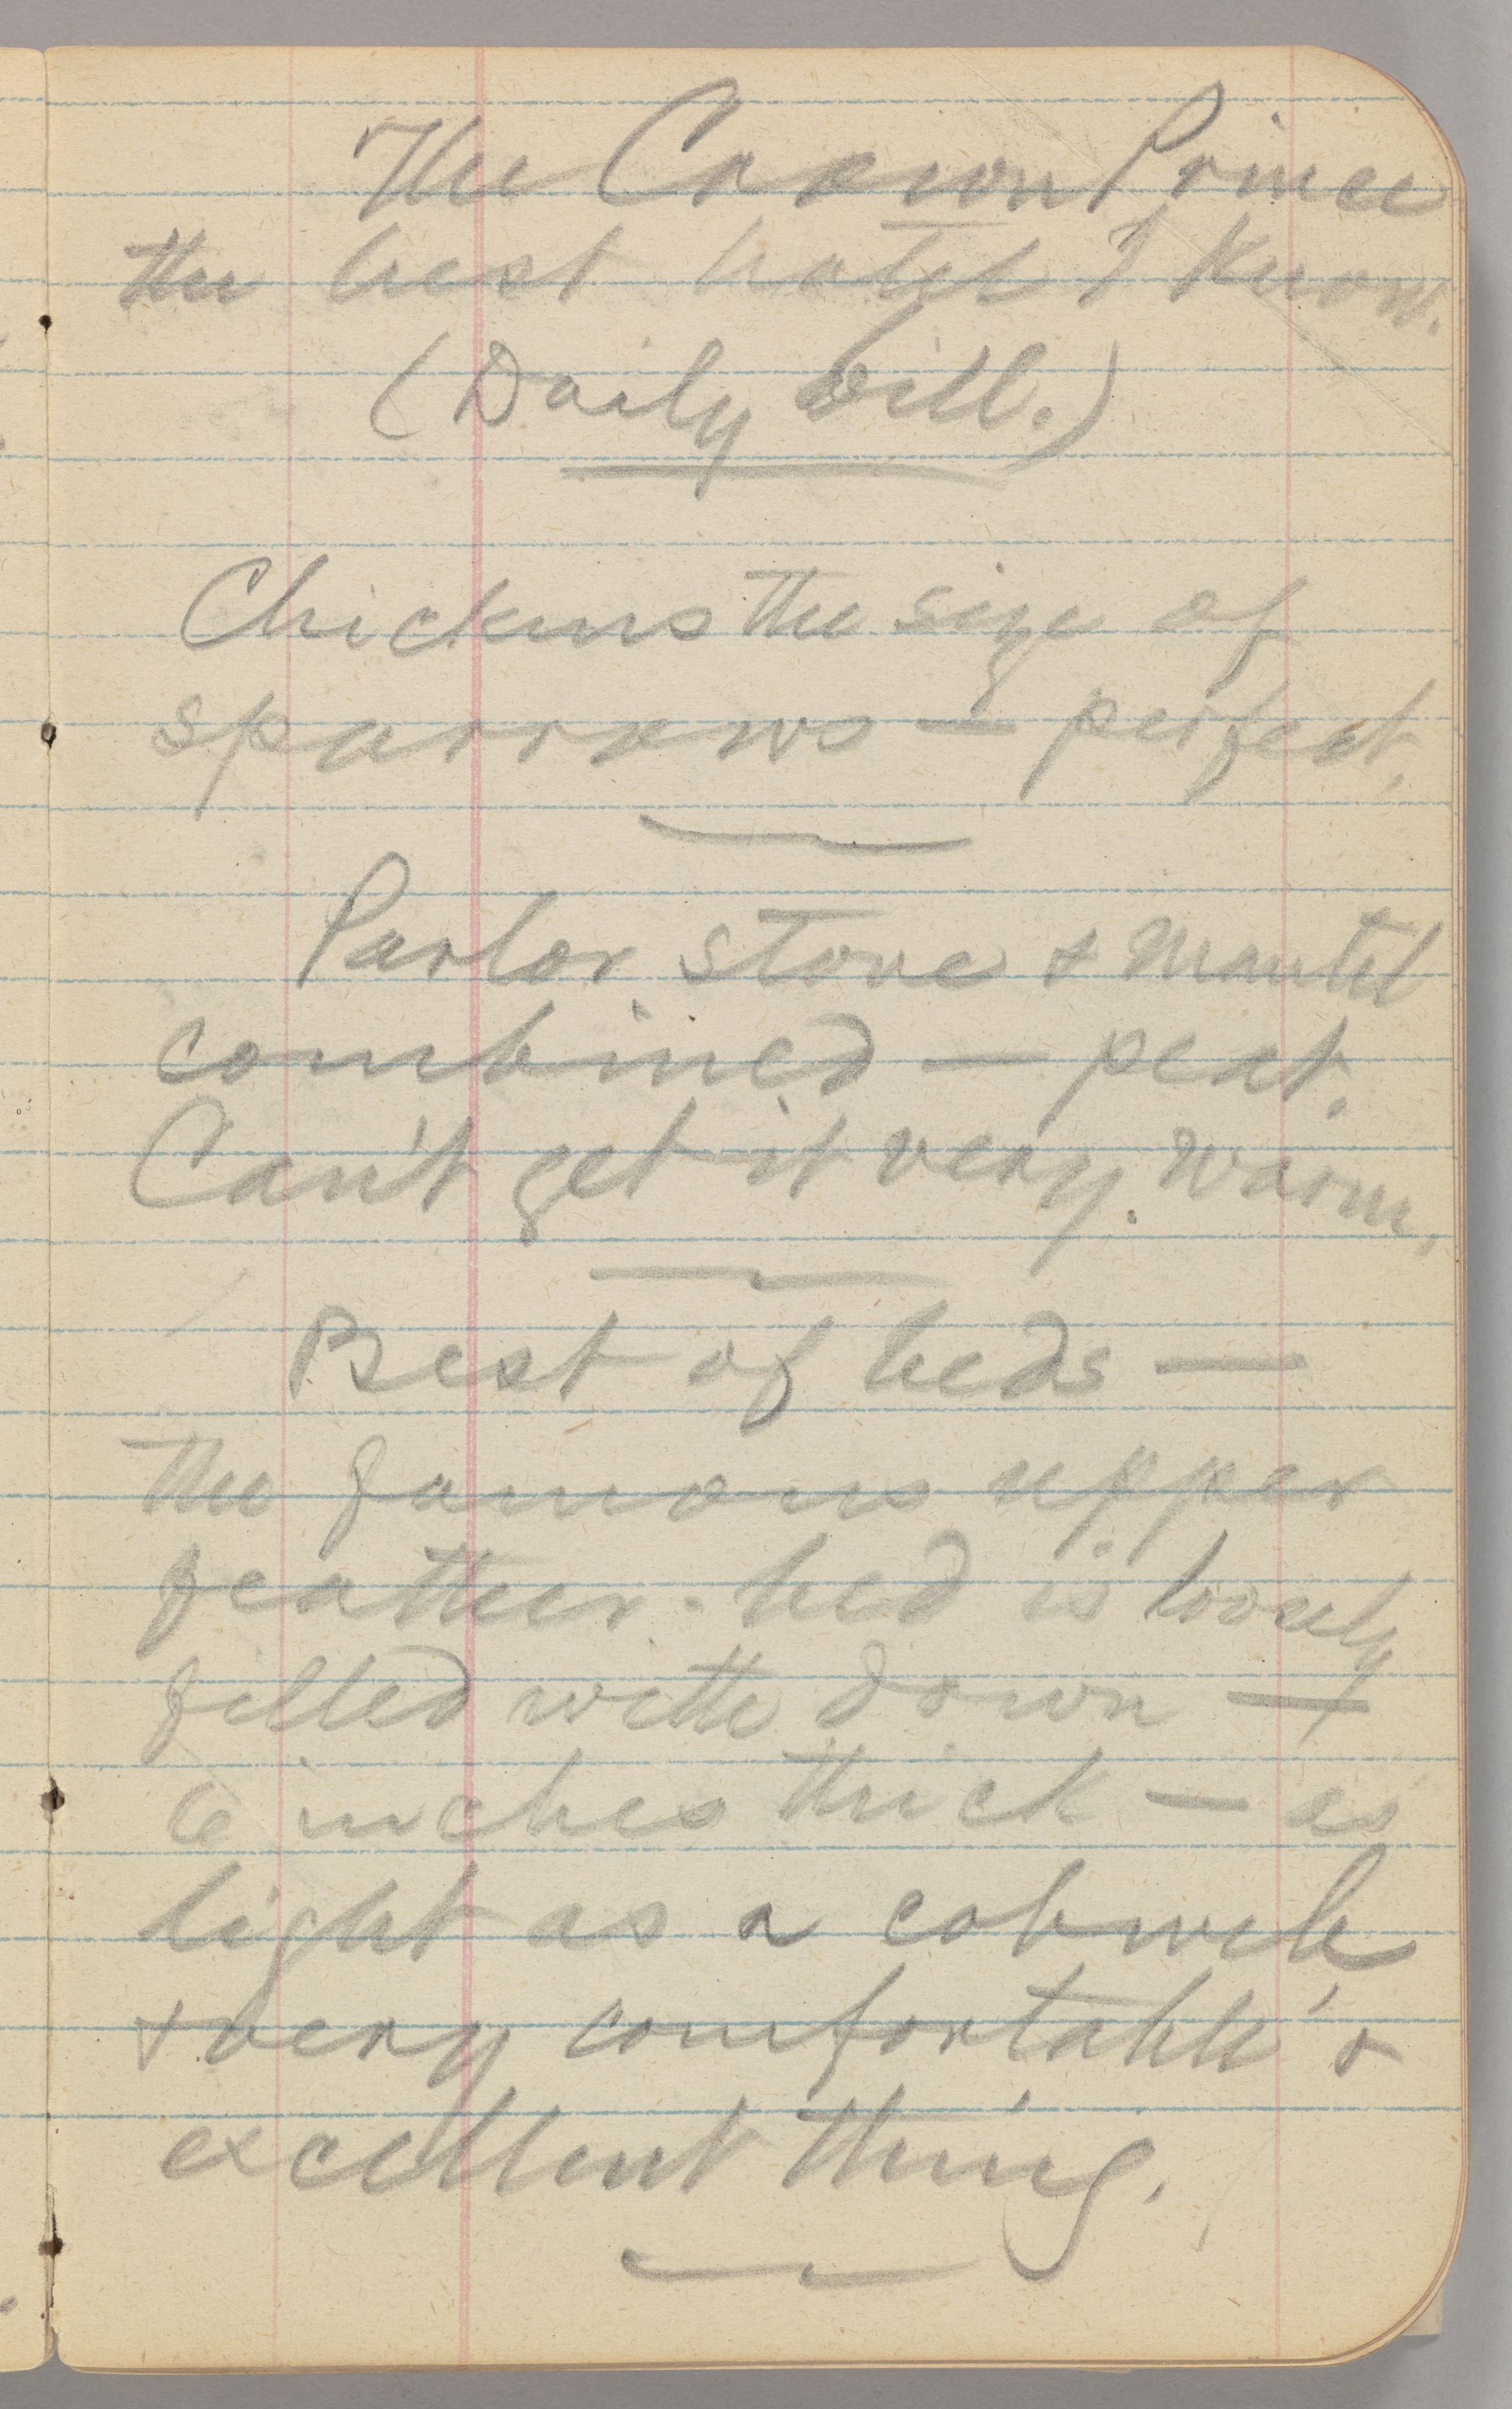 The Crown Prince
the best hotel I know.
(Daily bill.)
Chickens the size of
sparrows — perfect.
Parlor stove & mantel
combined — peat.
Can't get it very warm.
Best of beds —
the famous upper
feather-bed is loosely
filled with down —
6 inches thick — as
light as a cobweb
& very comfortable &
excellent thing.